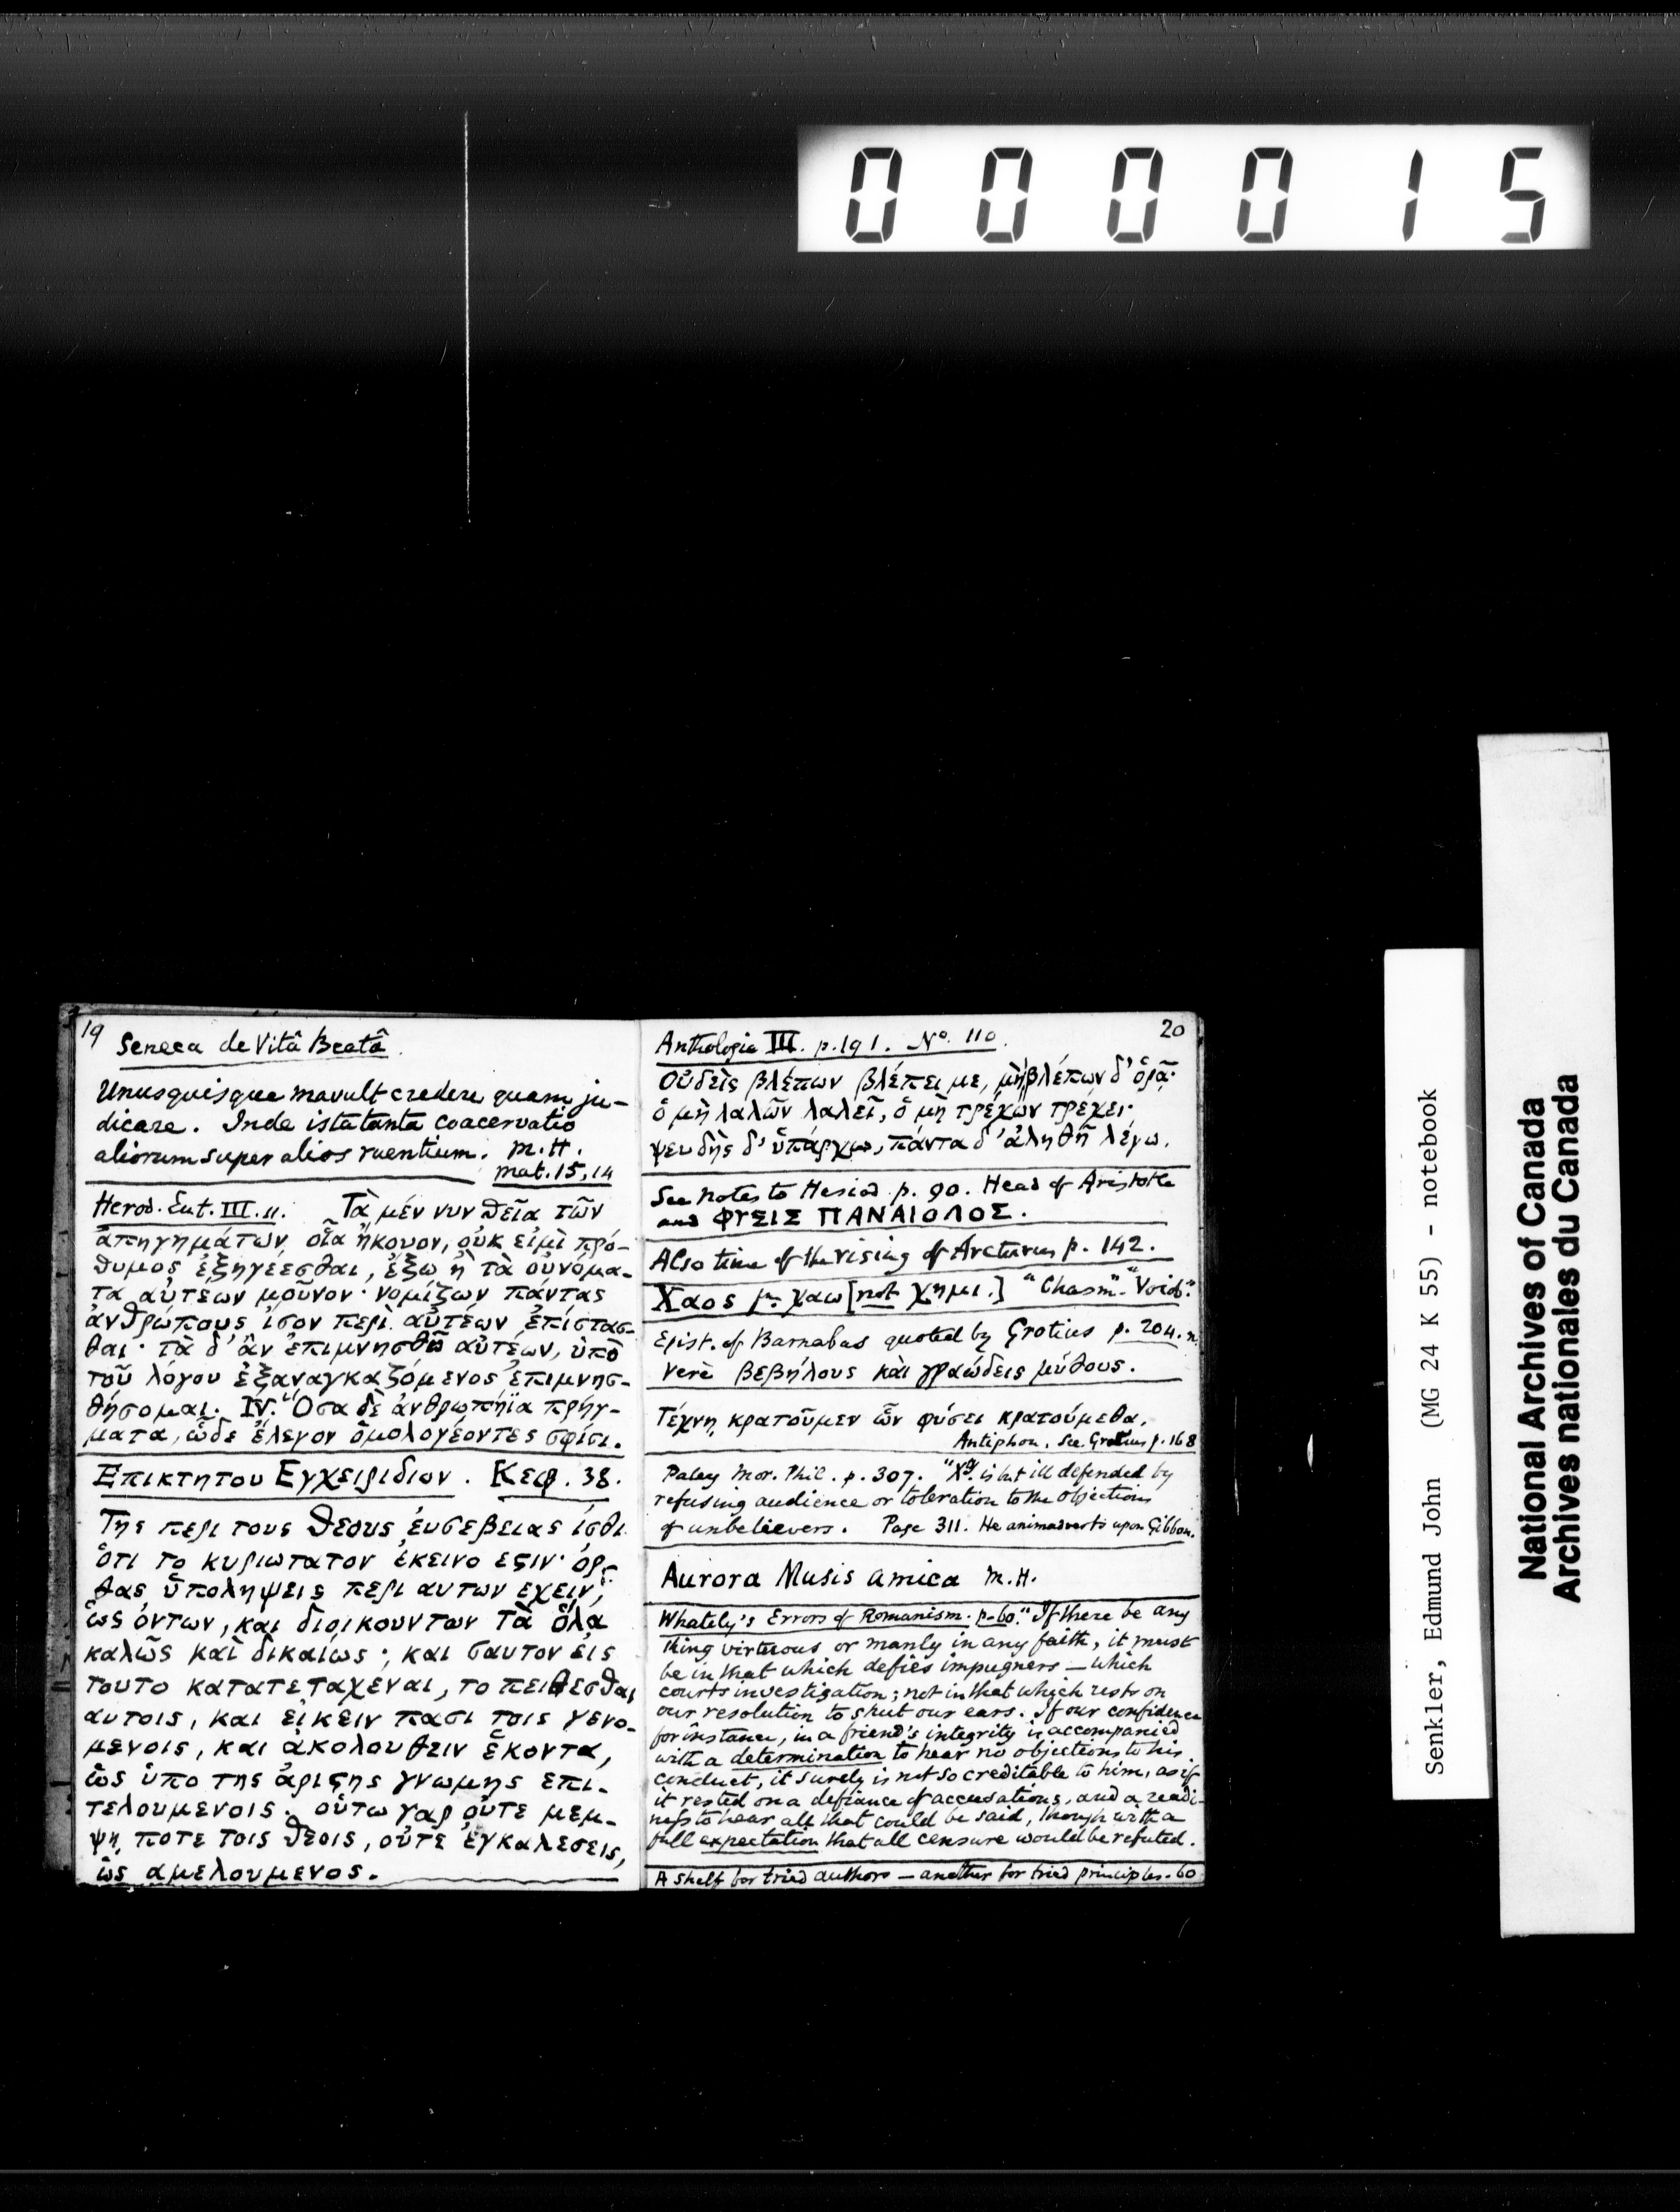 000015
19
Seneca de Vitâ Beatâ.
Unusquisque mavult credere quam ju-
dicare. Inde ista tanta coacervatio
aliorum super alios ruentium. M.H.
Mat. 15, 14
Herod. Eut. III. 11. Τὰ μέν νυν θεῖα τῶν
ἀπηγημάτων οἷα ἤκουον, οὐκ εἰμὶ πρό-
θυμος ἐξηγέεσθαι, ἔξω ἢ τὰ οὐνόμα-
τα αὐτεων μοῦνον· νομίζων πάντας
ἀνθρώπους ἴσον περὶ αὐτέων ἐπίστασ-
θαι· τὰ δ' ἂν ἐπιμνησθῶ αὐτέων, ὑπὸ
τοῦ λόγου ἐξαναγκαζόμενος ἐπιμνησ-
θήσομαι. IV. "Οσα δὲ ἀνθρωπήϊα πρήγ-
ματα, ὧδε ἔλεγον ὁμολογέοντες σφίσι.
Επικτητου Εγχειριδιον. Κεφ. 38.
Της περι τους θεους ἐυσεβειας ἰσθι
ὁτι το κυριωτατον ἐκεινο εϛιν· ὀρ-
θας ὑποληψεις περι αυτων εχειν,
ὡς ὀντων, και διοικουντων τὰ ὅλα
καλῶς καὶ δικαίως; και σαυτον ἐις
τουτο κατατεταχεναι, το πειθεσθαι
αυτοις, και εἰκειν πασι τοις γενο-
μενοις, και ἀκολουθειν ἑκοντα,
ὡς ὑπο της ἀριϛης γνωμης επι-
τελουμενοις. οὑτω γαρ οὐτε μεμ-
ψη ποτε τοις θεοις, οὐτε ἐγκαλεσεις,
ὡς αμελουμενος.
20
Anthologia III. p. 191. No. 110.
Οὐδεὶς βλέπων βλέπει με, μὴ βλέπων δ' ὁρᾷ·
ὁ μὴ λαλῶν λαλεῖ, ὁ μὴ τρέχων τρέχει·
ψευδὴς δ' ὑπάρχω, πάντα δ' ἀληθῆ λέγω.
See notes to Hesiod p. 90. Head of Aristotle
and ΦΥΣΙΣ ΠΑΝΑΙΟΛΟΣ.
Also time of the rising of Arcturus p. 142.
Χαος fm χαω [not χημι.] "Chasm" - "Void."
Epist. of Barnabas quoted by Grotius p. 204. n.
Verè βεβήλους κὰι γραώδεις μύθους.
Τέχνῃ κρατοῦμεν ὧν φύσει κρατούμεθα.
Antiphon. See Grotius p. 168
Paley Mor. Phil. p. 307. "Xy. is but ill defended by
refusing audience or toleration to the objections
of unbelievers. Page 311. He animadverts upon Gibbon.
Aurora Musis amica M.H.
Whately's Errors of Romanism. p. 60. "If there be any
thing virtuous or manly in any faith, it must
be in that which defies impugners — which
courts investigation; not in that which rests on
our resolution to shut our ears. If our confidence
for instance, in a friend's integrity is accompanied
with a determination to hear no objections to his
conduct, it surely is not so creditable to him, as if
it rested on a defiance of accusations, and a readi-
ness to hear all that could be said, though with a
full expectation that all censure would be refuted.
A shelf for tried authors — another for tried principles. 60
Senkler, Edmund John (MG 24 K 55) - notebook
National Archives of Canada
Archives nationales du Canada